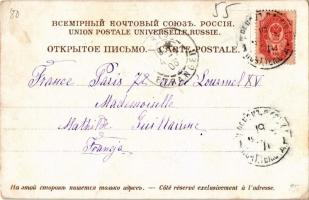 80
55
ВСЕМІРНЫЙ ПОЧТОВЫЙ СОЮЗЪ. РОССІЯ.
UNION POSTALE UNIVERSELLE. RUSSIE.
ОТКРЫТОЕ ПИСЬМО. — CARTE POSTALE.
France Paris 72 Lourmel XV
Mademoiselle
Mathilde Guillaume
На этой сторонѣ пишется только адресъ. — Côté réservé exclusivement à l'adresse.